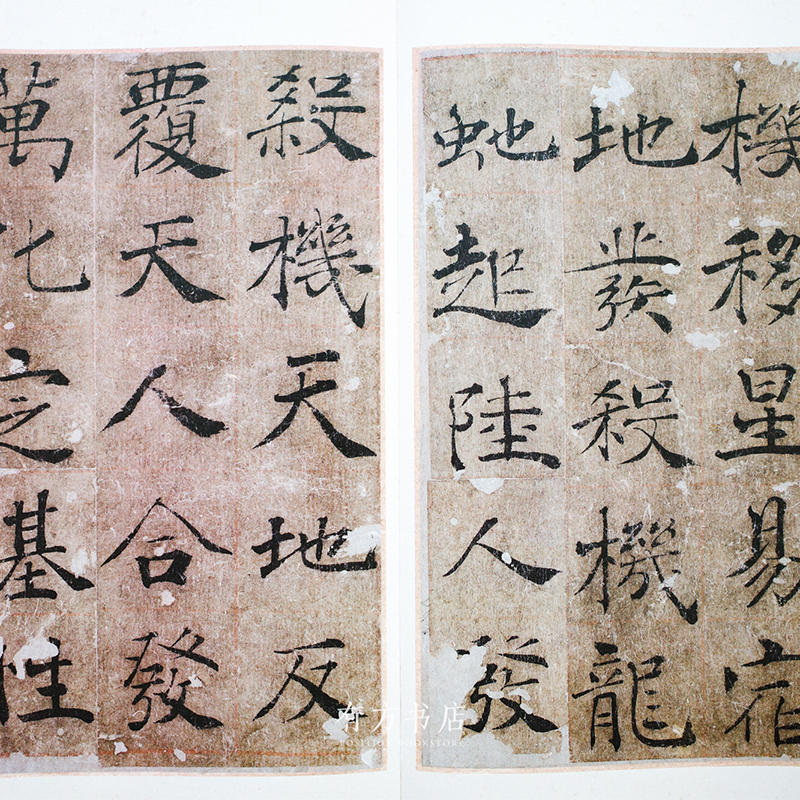 機移星易宿
地發殺機龍
虵起陸人發
殺機天地反
覆天人合發
萬化定基性
有方书店
POSITION BOOKSTORE